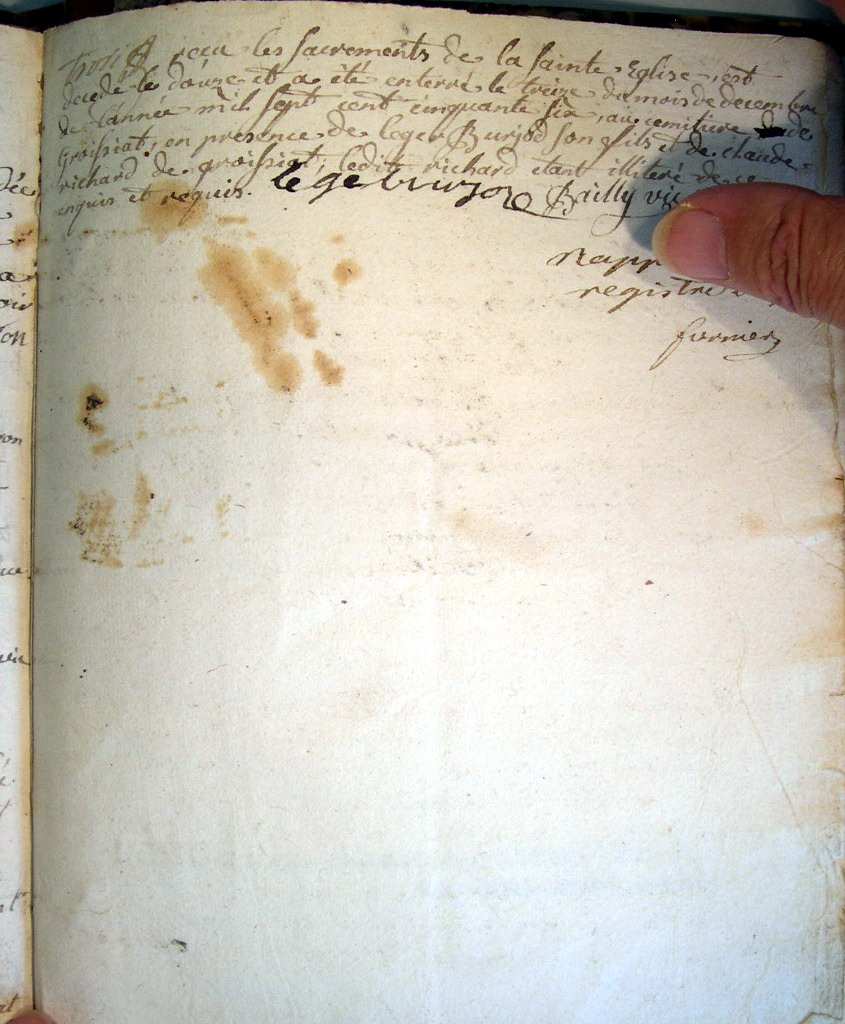 reçu les sacrements de la sainte Eglise, est
decede le douze et a été enterré le treize du mois de decembre
de l'année mil sept cent cinquante six, au cemitiere de
Groissiat, en presence de leger Burjod son fils et de claude
richard de groissiat, ledit richard etant illiteré de ce
enquis et requis. lege burjod Bailly vic
registre
fornier